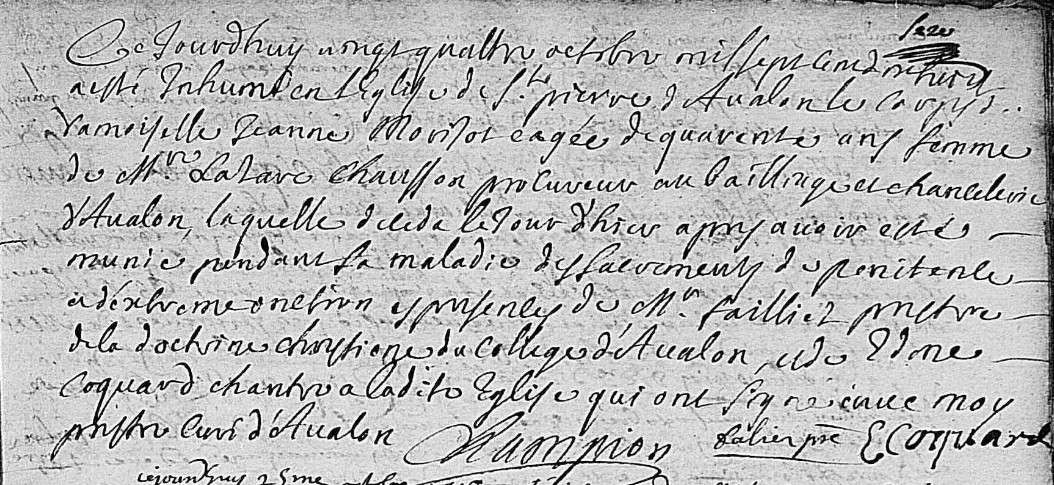 Ce Jourdhuy vingt quattre octobre mil sept cens
a esté Inhumé en l'Eglise de St pierre d'Aualon le corps d..
damoiselle Jeanne Morizot eagée de quarente ans femme
de Mre Lazare Chausson procureur au bailliage et chancelerie
d'Aualon, laquelle deceda le Jour d'hier apres auoir esté
munie pendant sa maladie des sacrements de penitence
et dextreme onction es presences de Mr. Taillier prestre
de la doctrine chrestiene du College d'Aualon, et de Edme
Coquard chantre a ladite Eglise qui ont signé auec moy
prestre curé d'Aualon Champion talier pre E Coquard
cejourdhuy 25me